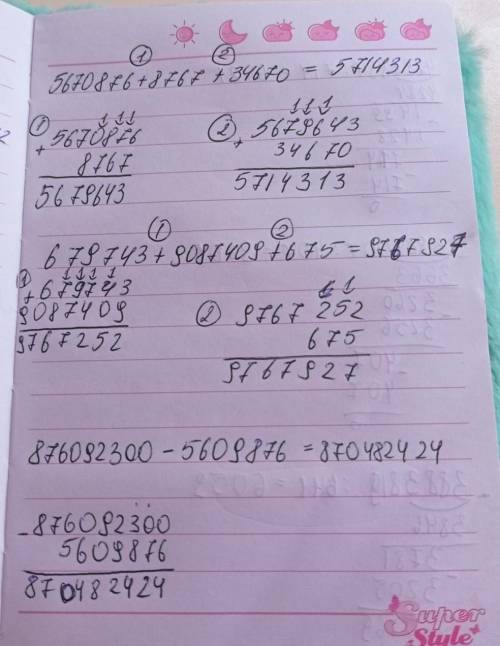 ① ②
5670876+8767+34670 = 5714313
① 111
+ 5670876
8767
5679643
② 111
+ 5679643
34670
5714313
① ②
679743+9087409+675=9767927
① 1111 1
+679743
9087409
9767252
② 11
9767252
675
9767927
876092300-5609876=870482424
-876092300
5609876
870482424
Super
Style